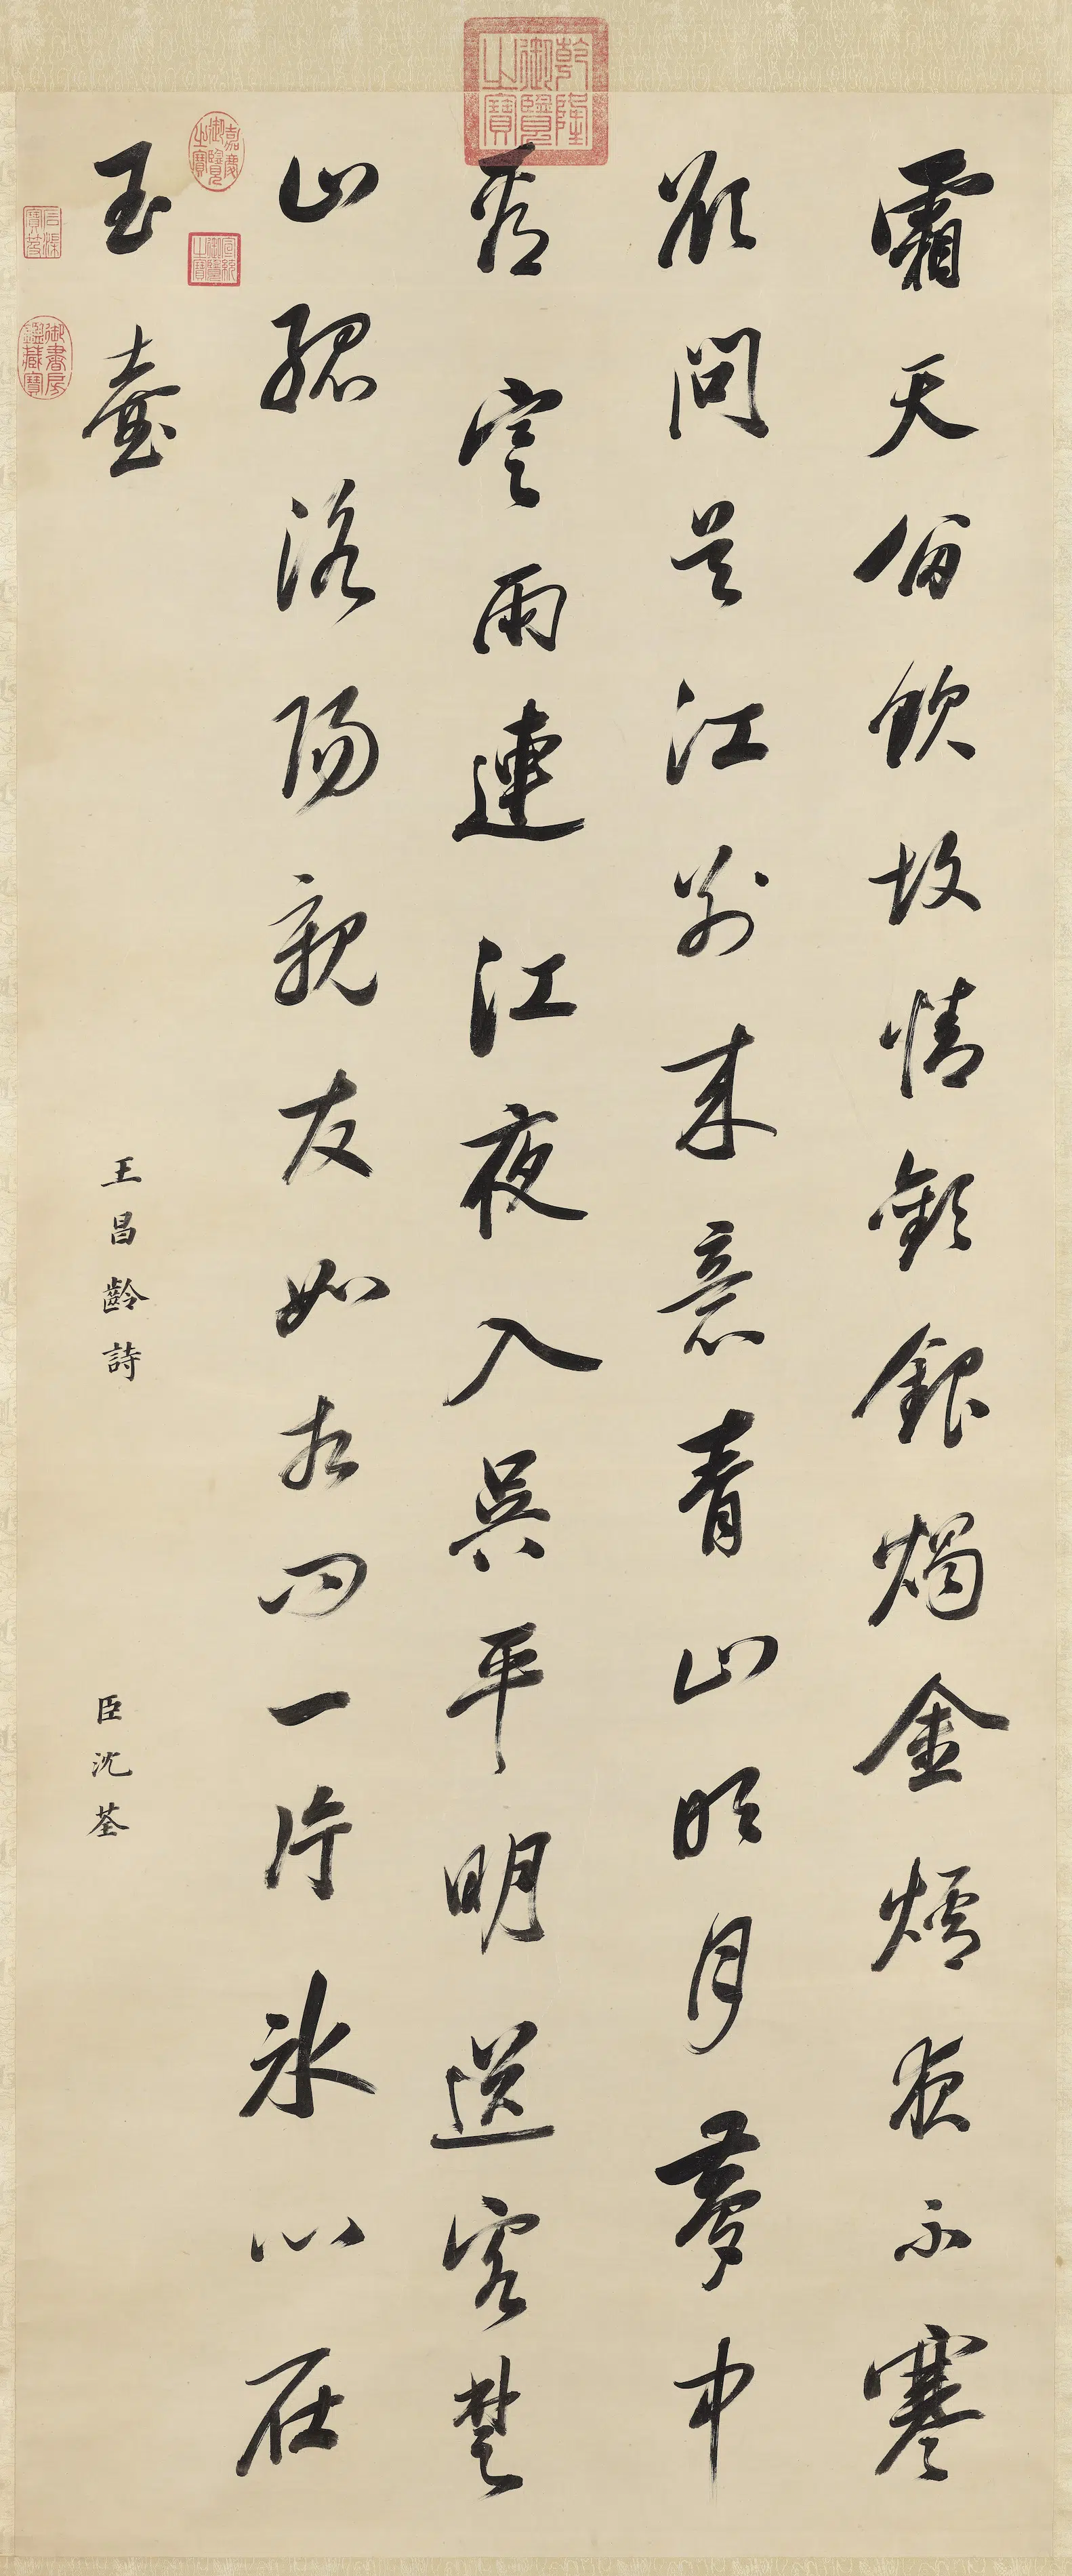 乾隆御覽之寶
霜天留飲故情歡銀燭金爐夜不寒
欲問吳江別來意青山明月夢中
看寒雨連江夜入吳平明送客楚
山孤洛陽親友如相問一片冰心在
玉壺
王昌齡詩
臣沈荃
嘉慶御覽之寶
宣統御覽之寶
石渠寶笈
御書房鑑藏寶